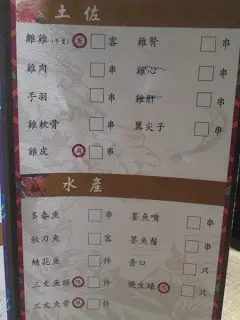 土佐
雞 □ 客
雞腎 □ 串
雞肉 □ 串
雞心 □ 串
手羽 □ 串
雞肝 □ 串
雞軟骨 □ 串
翼尖子 □ 串
雞皮 □ 串
水產
多春魚 □ 串
墨魚嘴 □ 串
秋刀魚 □ 客
墨魚鬚 □ 串
鯖花魚 □ 件
青口 □ 只
三文魚 □ 件
燒生蠔 □ 只
三文魚骨 □ 件